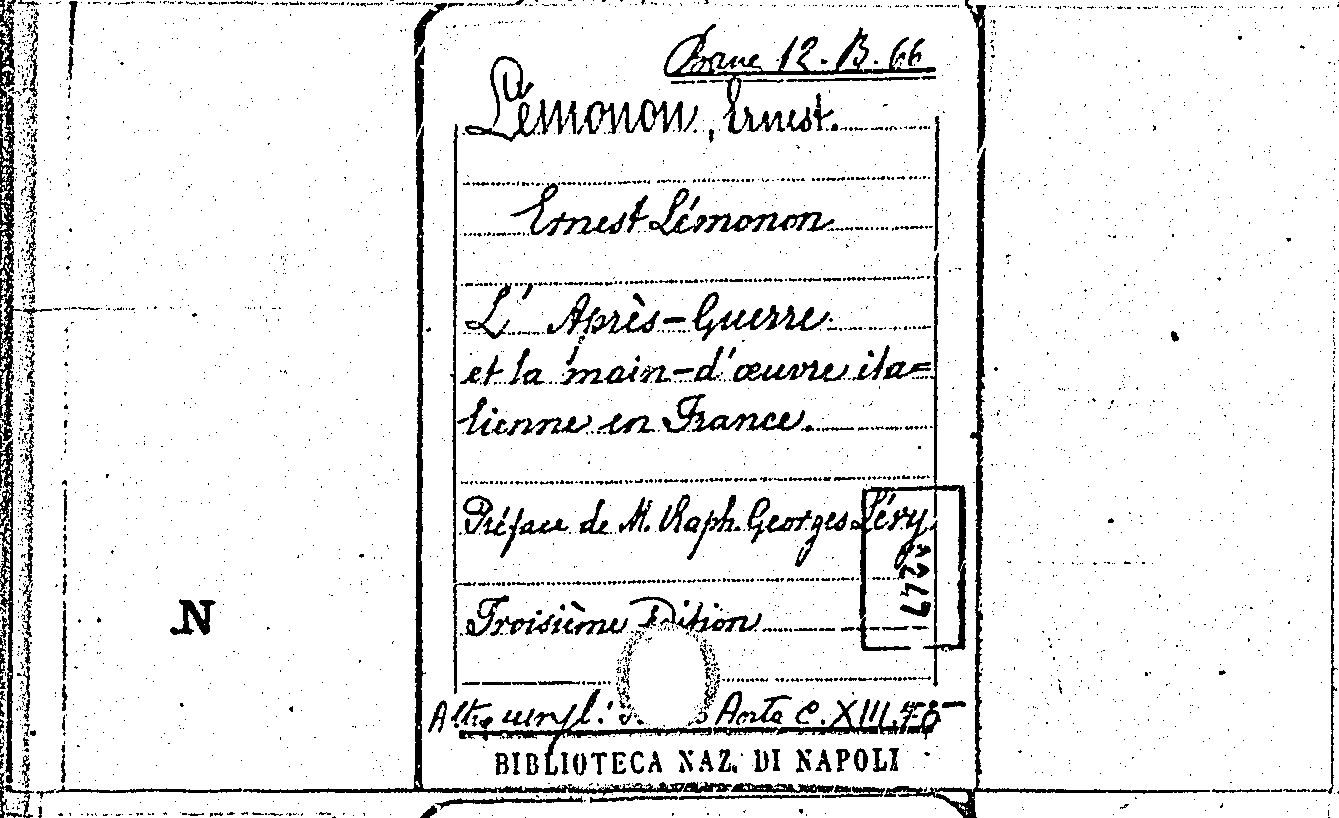 12. B. 66
Lémonon, Ernest.
Ernest Lémonon
L' Après-Guerre
et la main-d'œuvre ita=
lienne en France.
Préface de M. Raph. Georges Lévy.
Troisième Edition
N
C. XIII.
BIBLIOTECA NAZ. DI NAPOLI